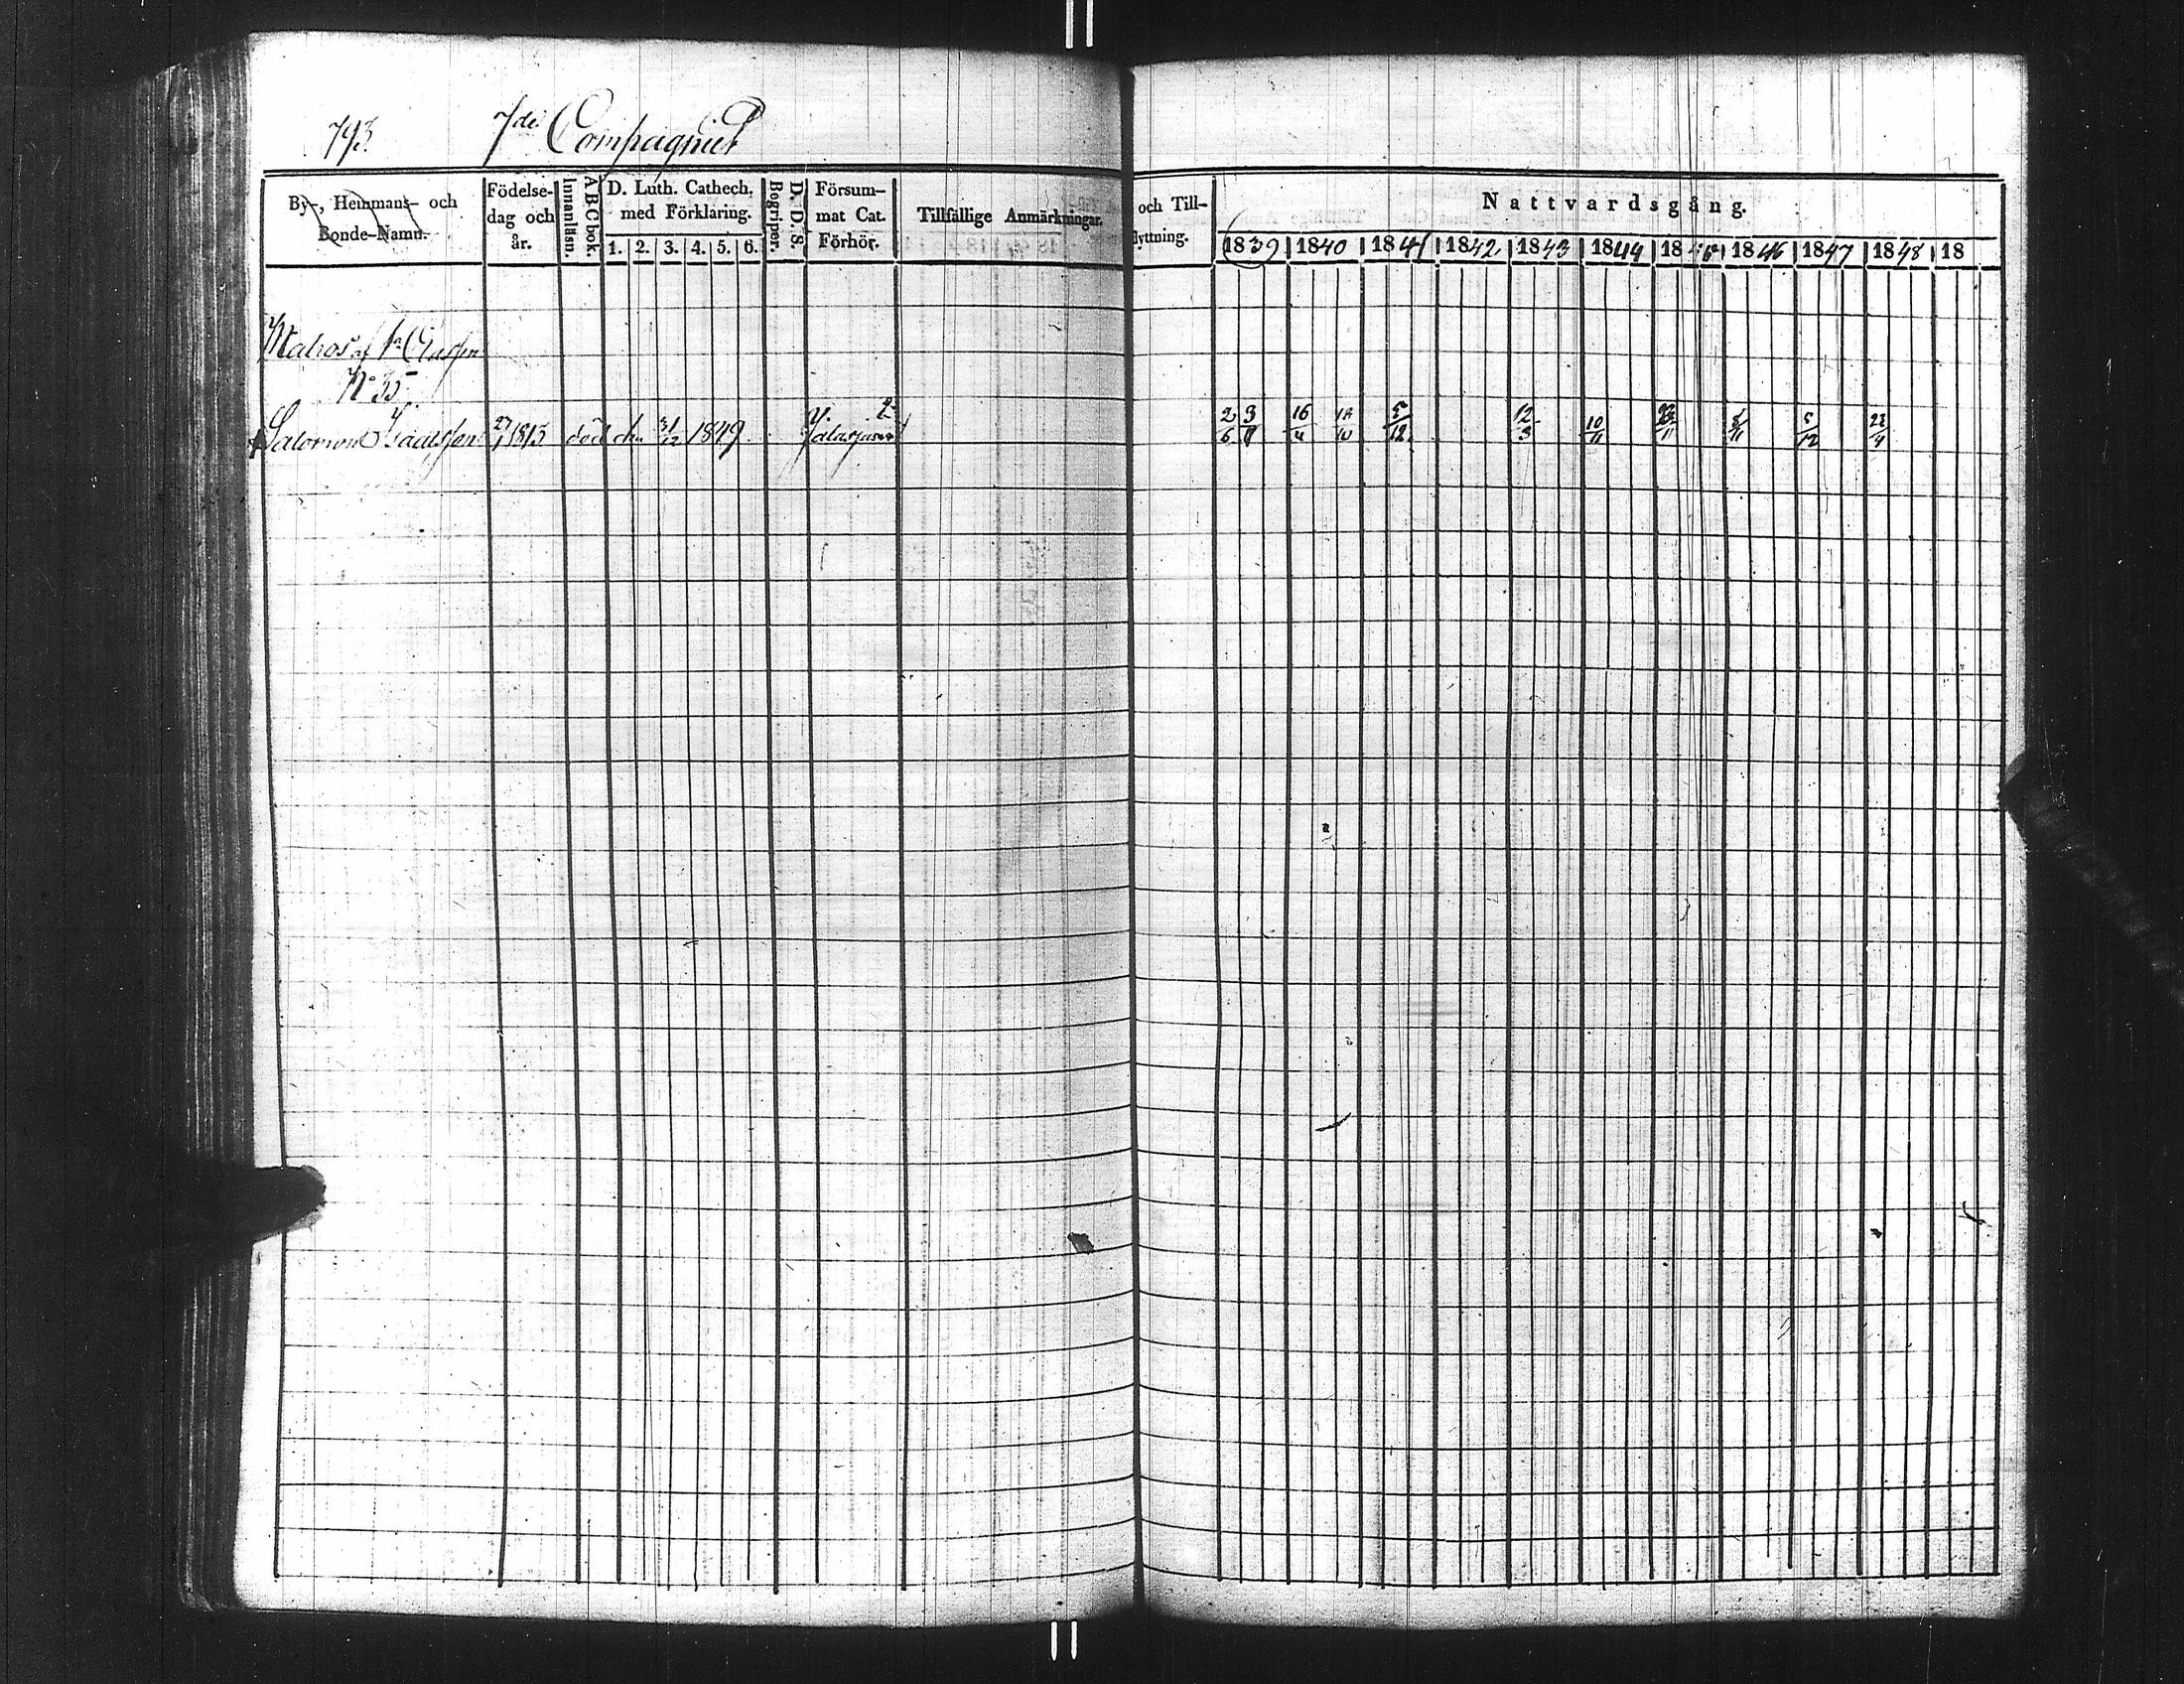 793. 7de Compagniet
By-, Hemmans- och Bonde-Namn. Födelse- dag och år. Innanläsn. A B C bok. D. Luth. Cathech. med Förklaring. 1. 2. 3. 4. 5. 6. Begriper. D. D. S. Försum- mat Cat. Förhör. Tillfällige Anmärkningar. och Till- flyttning. Nattvardsgång.
1839 1840 1841 1842 1843 1844 1845 1846 1847 1848 18
Matros af 1a Classen
No 35
Salomon Isaacsson 27/1 1813 död d. 31/12 1849 2/6 3/9 16/4 18/10 5/12 12/3 10/11 23/11 8/11 5/12 22/4